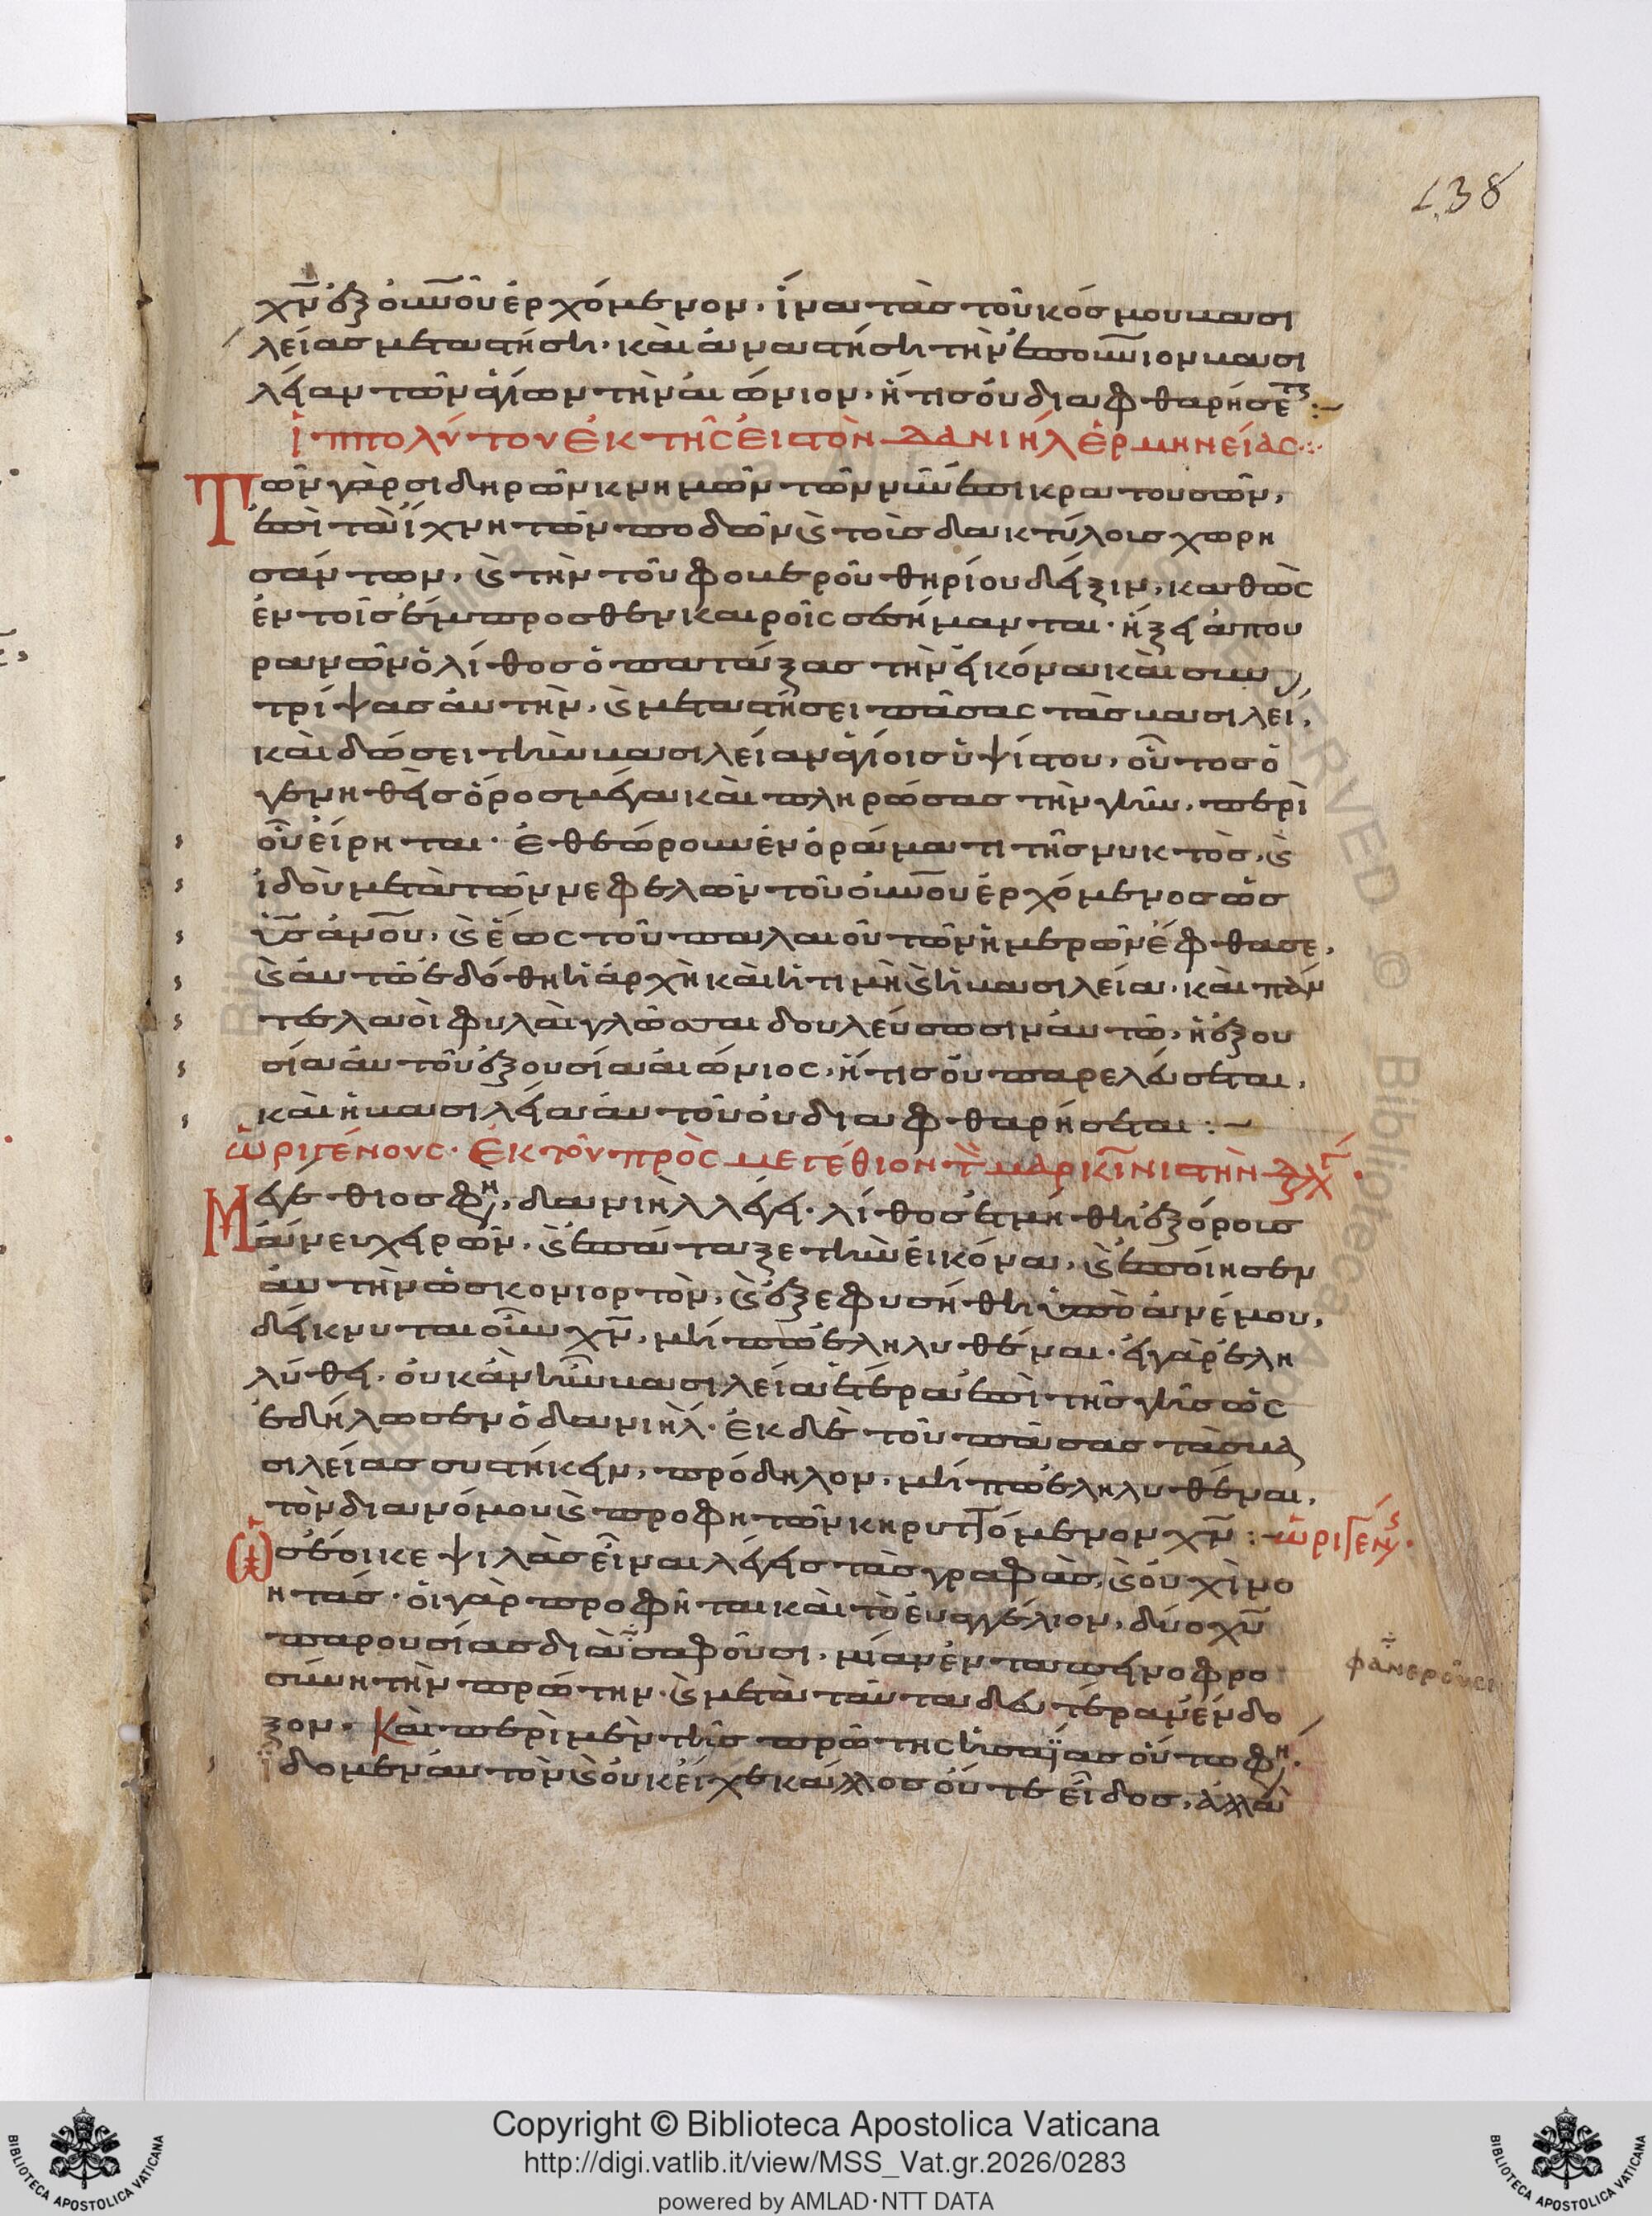 138
χ̅ν̅ ἐξ ο̅υ̅ν̅οῦ ἐρχόμενον, ἵνα τὰς τοῦ κόσμου βασι
λείας μεταστήσῃ· καὶ ἀναστήσῃ τὴν ἐπουνιον βασι
λείαν τῶν ἁγίων τὴν αἰώνιον, ἥτις οὐ διαφθαρήσεται :~
Ἱππολύτου ἐκ τῆς εἰς τὸν Δανιὴλ ἑρμηνείας
Τῶν γὰρ σιδηρῶν κνημῶν τῶν νῦν ἐπικρατουσῶν,
ἐπὶ τὰ ἴχνη τῶν ποδῶν ϗ τοὺς δακτύλους χωρη
σάντων, ϗ τὴν τοῦ φοβεροῦ θηρίου δεῖξιν, καθὼς
ἐν τοῖς ἔμπροσθεν καιροῖς σεσήμανται· ἥξει ἀπ ου
ρανῶν ὁ λίθος ὁ πατάξας τὴν εἰκόνα καὶ συν
τρίψας αὐτὴν, ϗ μεταστήσει πάσας τὰς βασιλεί,
καὶ δώσει τὴν βασιλείαν ἁγίοις ὑψίστου, οὗτος ὁ
γενηθεὶς ὄρος μέγα καὶ πληρώσας τὴν γῆν, περὶ
οὗ εἴρηται· ἐθεώρουν ἐν ὁράματι τῆς νυκτὸς, ϗ
ἰδοὺ μετὰ τῶν νεφελῶν τοῦ ο̅υ̅ν̅ου ἐρχόμενος ὡς
υ̅ς̅ α̅ν̅ο̅υ̅, ϗ ἕως τοῦ παλαιοῦ τῶν ἡμερῶν ἔφθασε,
ϗ αὐτῷ ἐδόθη ἡ ἀρχὴ καὶ ἡ τιμὴ ϗ ἡ βασιλεία· καὶ πάν
τες λαοὶ φυλαὶ γλῶσσαι δουλεύσωσιν αὐτῷ, ἡ ἐξου
σία αὐτοῦ ἐξουσία αἰώνιος, ἥτις οὐ παρελεύσεται,
καὶ ἡ βασιλεία αὐτοῦ οὐ διαφθαρήσεται :~
Ὠριγένους· ἐκ τοῦ πρὸς Μεγέθιον τ̀ μαρκι̅νιστὴν
Μεγέθιος φη, Δανιὴλ λέγει· λίθος ἐτμήθη ἐξ ὄρους
ἄνευ χειρῶν, ϗ ἐπάταξε τὴν εἰκόνα, ϗ ἐποίησεν
αὐτὴν ὡς κονιορτὸν, ϗ ἐξεφυσήθη ὑπὸ ἀνέμου,
δείκνυται οὖν χ̅ν̅, μήπω ἐληλυθέναι· εἰ γὰρ ἐλη
λύθει, οὐκ ἂν ἦν βασιλεία ἑτέρα ἐπὶ τῆς γῆς ὡς
ἐδήλωσεν ὁ Δανιήλ· ἐκ δὲ τοῦ πάσας τὰς βα
σιλείας συστήκειν, πρόδηλον, μήπω ἐληλυθέναι,
τὸν διὰ νόμου ϗ προφητῶν κηρυττόμενον χ̅ν̅ :~ Ὠριγέν·
Ὡς ἔοικε ψιλὰς εἶναι λέγεις τὰς γραφὰς, ϗ οὐχὶ νο
ητάς· οἱ γὰρ προφῆται καὶ τὸ εὐαγγέλιον, δύο χ̅υ̅
παρουσίας διασαφοῦσι, μίαν ἐν ταπεινοφρο
φανεροῦσι
σύνῃ τὴν πρώτην· ϗ μετὰ ταῦτα δευτέραν ἔνδο
ξον. Καὶ περὶ μὲν τῆς πρώτης ἡσαΐας οὕτω φη·
ἴδομεν αὐτὸν ϗ οὐκ εἶχε κάλλος οὔτε εἶδος, ἀλλὰ
Copyright © Biblioteca Apostolica Vaticana
http://digi.vatlib.it/view/MSS_Vat.gr.2026/0283
powered by AMLAD·NTT DATA
BIBLIOTECA APOSTOLICA VATICANA
BIBLIOTECA APOSTOLICA VATICANA